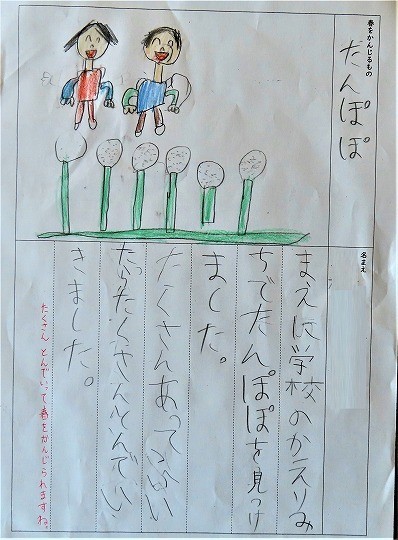 春をかんじるもの
たんぽぽ
名まえ
まえに学校のかえりみ
ちでたんぽぽを見つけ
ました。
たくさんあって
たらたくさんとんでい
きました。
たくさん とんでいって春をかんじられますね。